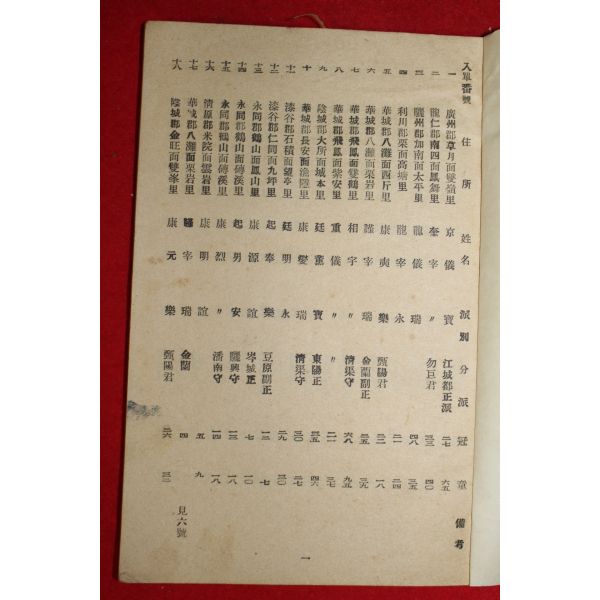 入單番號 住所 姓名 派別 分派 冠 童 備考
一 廣州郡草月面雙嶺里 京儀 寶 江城都正派 二七 六五
二 龍仁郡南四面鳳舞里 奎宰 〃 勿巨君 三三 四〇
三 驪州郡加南面太平里 龍儀 瑞 四八 三五
四 利川郡栗面高塘里 龍宰 永 二一 二四
五 華城郡八灘面西斤里 康爽 樂 甄陽君 三二 一八
六 華城郡八灘面栗岩里 謹宰 瑞 金蘭副正 三五 三九
七 華城郡飛鳳面雙鶴里 相宇 〃 淸渠守 六八 九五
八 華城郡飛鳳面紫安里 重儀 〃 〃 二一 三七
九 陰城郡大所面城本里 廷薰 寶 東陽正 三五 四六
十 華城郡長安面漁隱里 康燮 瑞 淸渠守 三〇 二七
十一 漆谷郡石積面望亭里 廷明 永 二九 三〇
十二 漆谷郡仁同面九坪里 起奉 樂 豆原副正 一三 七
十三 永同郡鶴山面鳳山里 康源 誼 岑城正 七 一〇
十四 永同郡鶴山面磚溪里 起男 安 驪興守 一三 一八
十五 永同郡鶴山面磚溪里 康烈 〃 潘南守 一四 一八
十六 淸原郡米院面雲岩里 康明 誼 五 九
十七 華城郡八灘面栗岩里 宰 瑞 金蘭 四
十八 陰城郡金旺面雙峯里 康元 樂 甄陽君 二六 三二 見六號
一